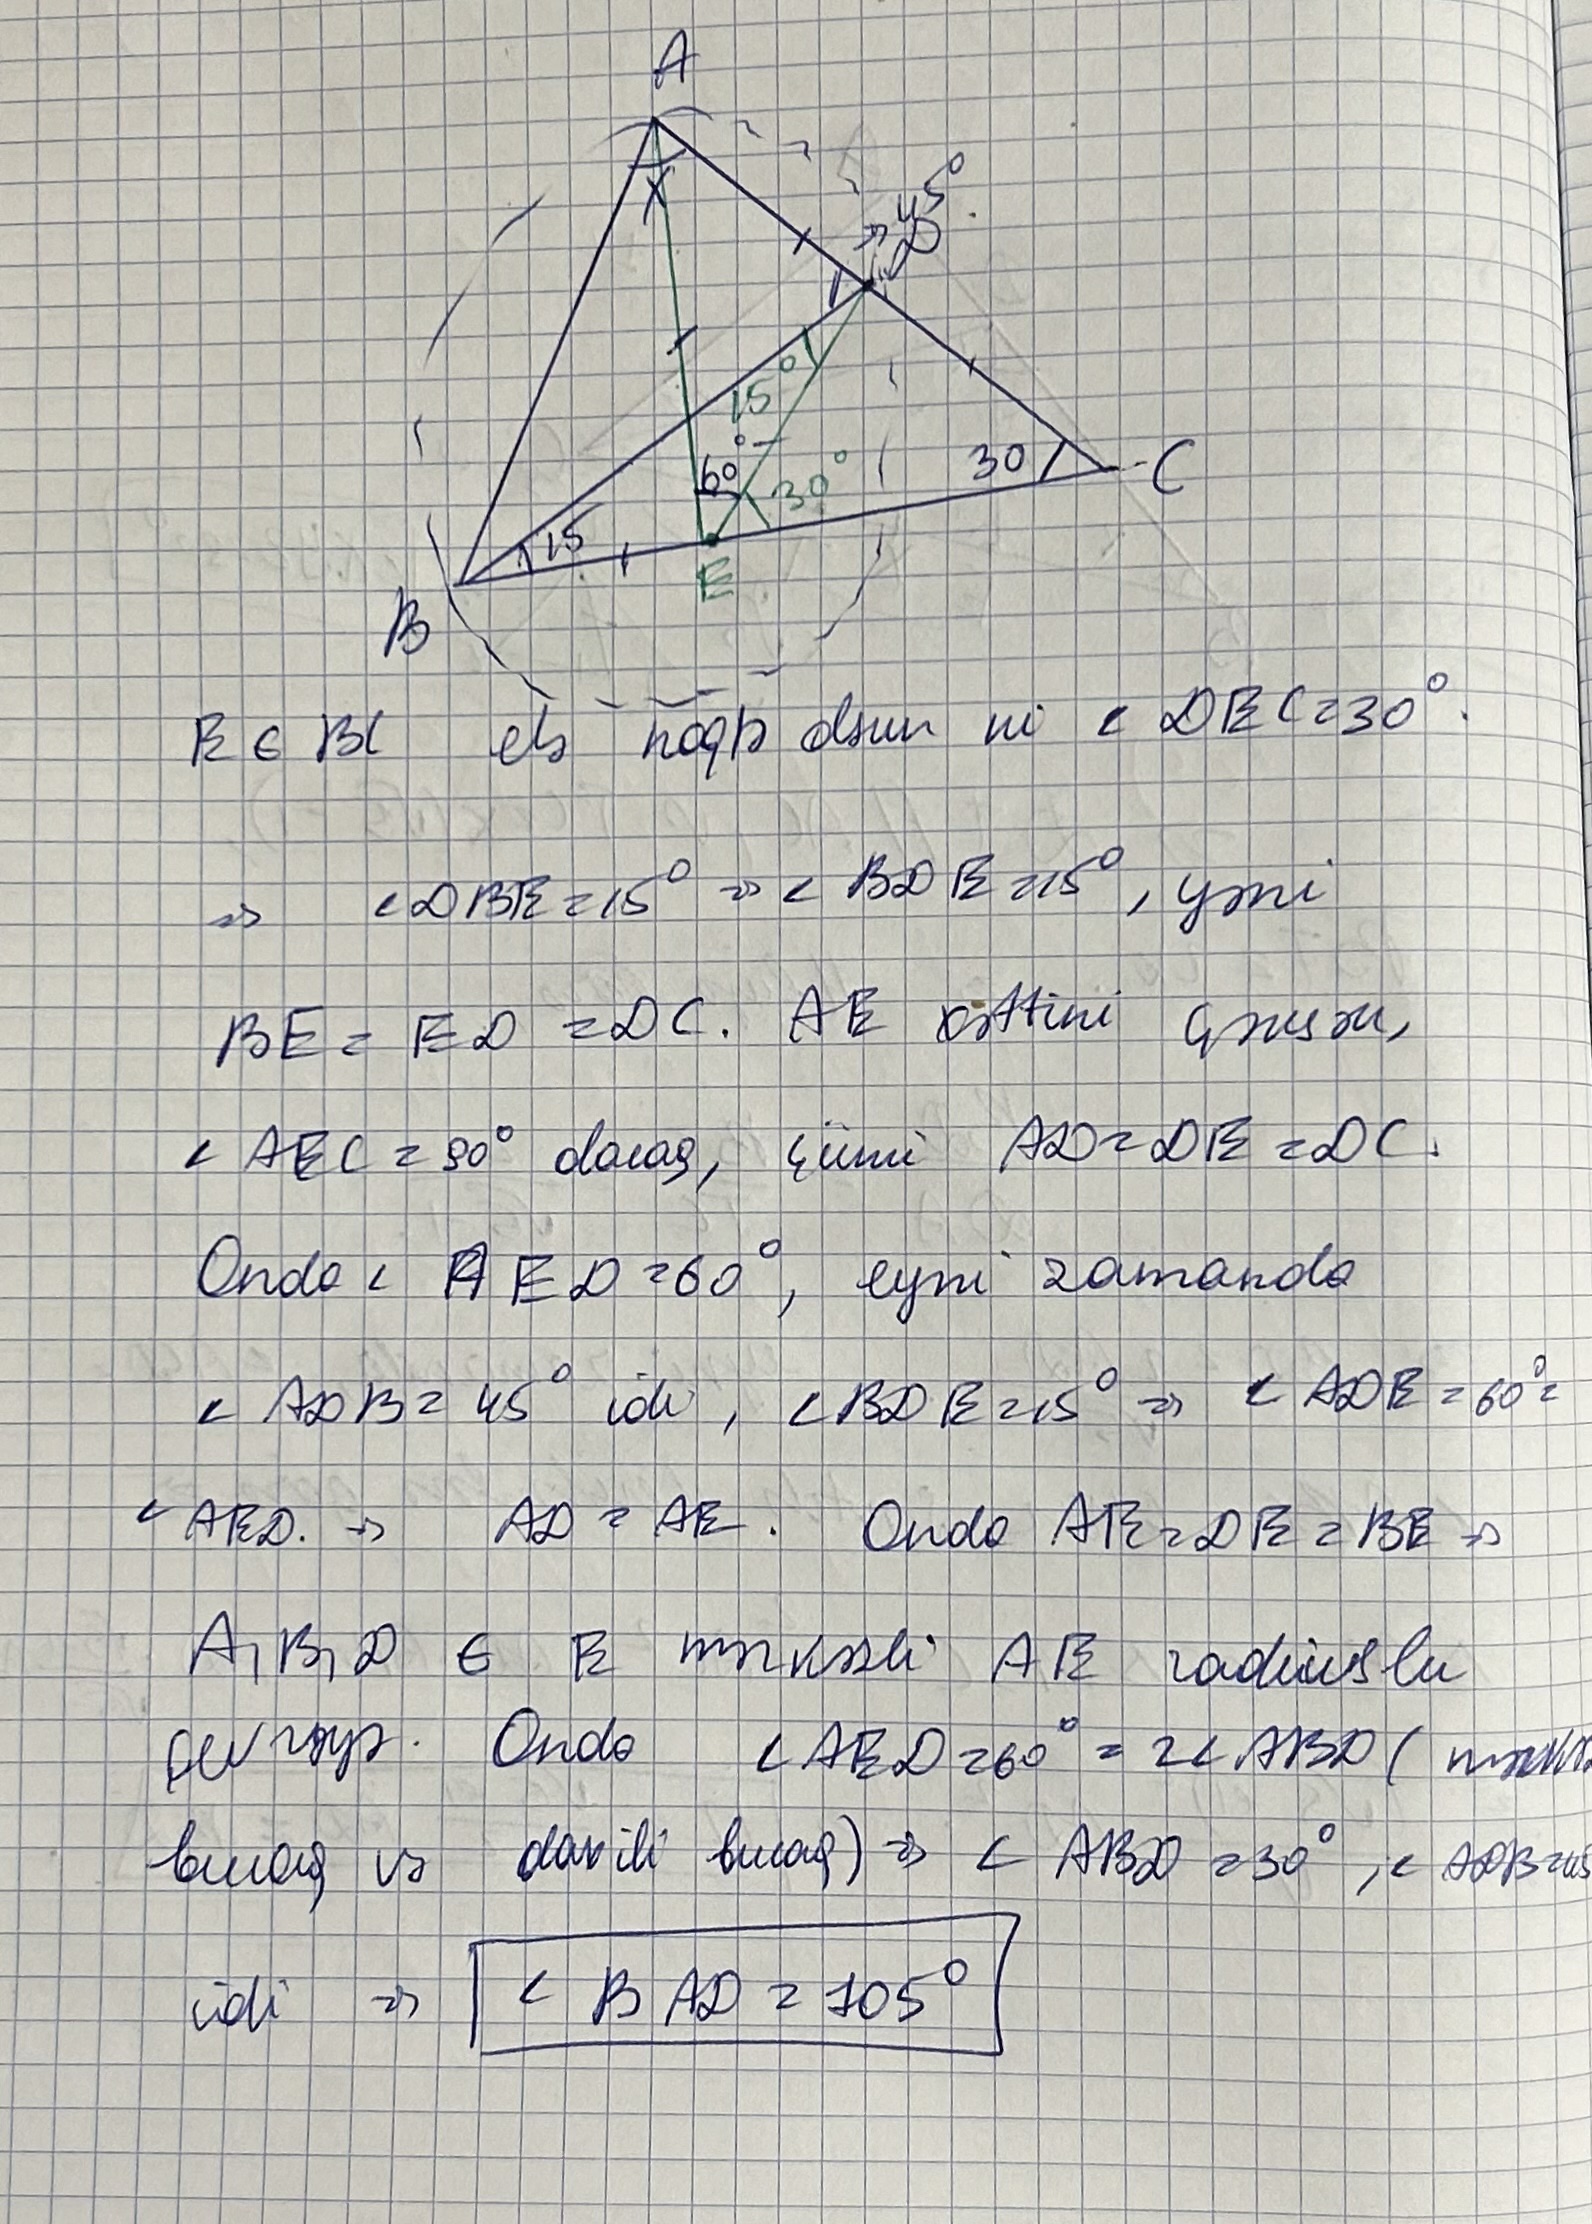 A
45°
D
15°
60°
30°
30
C
15
E
B
E ∈ BC elə nöqtə olsun ki ∠DEC=30°.
⇒ ∠DBE=15° ⇒ ∠BDE=15°, yəni
BE = ED = DC. AE xəttini çəksək,
∠AEC=90° olacaq, çünki AD=DE=DC.
Onda ∠AED=60°, eyni zamanda
∠ADB=45° idi, ∠BDE=15° ⇒ ∠ADE=60°=
∠AED. ⇒ AD = AE. Onda AE=DE=BE ⇒
A,B,D ∈ E mərkəzli AE radiuslu
çevrəyə. Onda ∠AED=60°=2∠ABD (
bucaq və daxili bucaq) ⇒ ∠ABD=30°, ∠ADB=45
idi ⇒ ∠BAD=105°